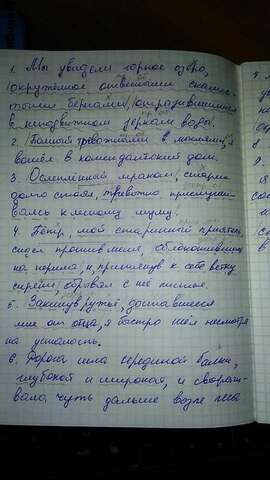 1. Мы увидели горное озеро,
окружённое отвесными скалис-
тыми берегами, отразившимися
в неподвижном зеркале воды.
2. Полный тревожными и мыслями, я
вошёл в комендантский дом.
3. Ослеплённый мраком, старик
долго стоял, тревожно прислуши-
ваясь к лесному шуму.
4. Пётр, мой старинный приятель,
сидел против меня, облокотившись
на перила и, притянув к себе ветку
сирени, обрывал с неё листья.
5. Закинув ружьё, доставшееся
мне от отца, я быстро шёл несмотря
на усталость.
6. Дорога шла серединой балки,
глубокой и широкой, и сворачи-
вала чуть дальше возле леса
5.
8
9.